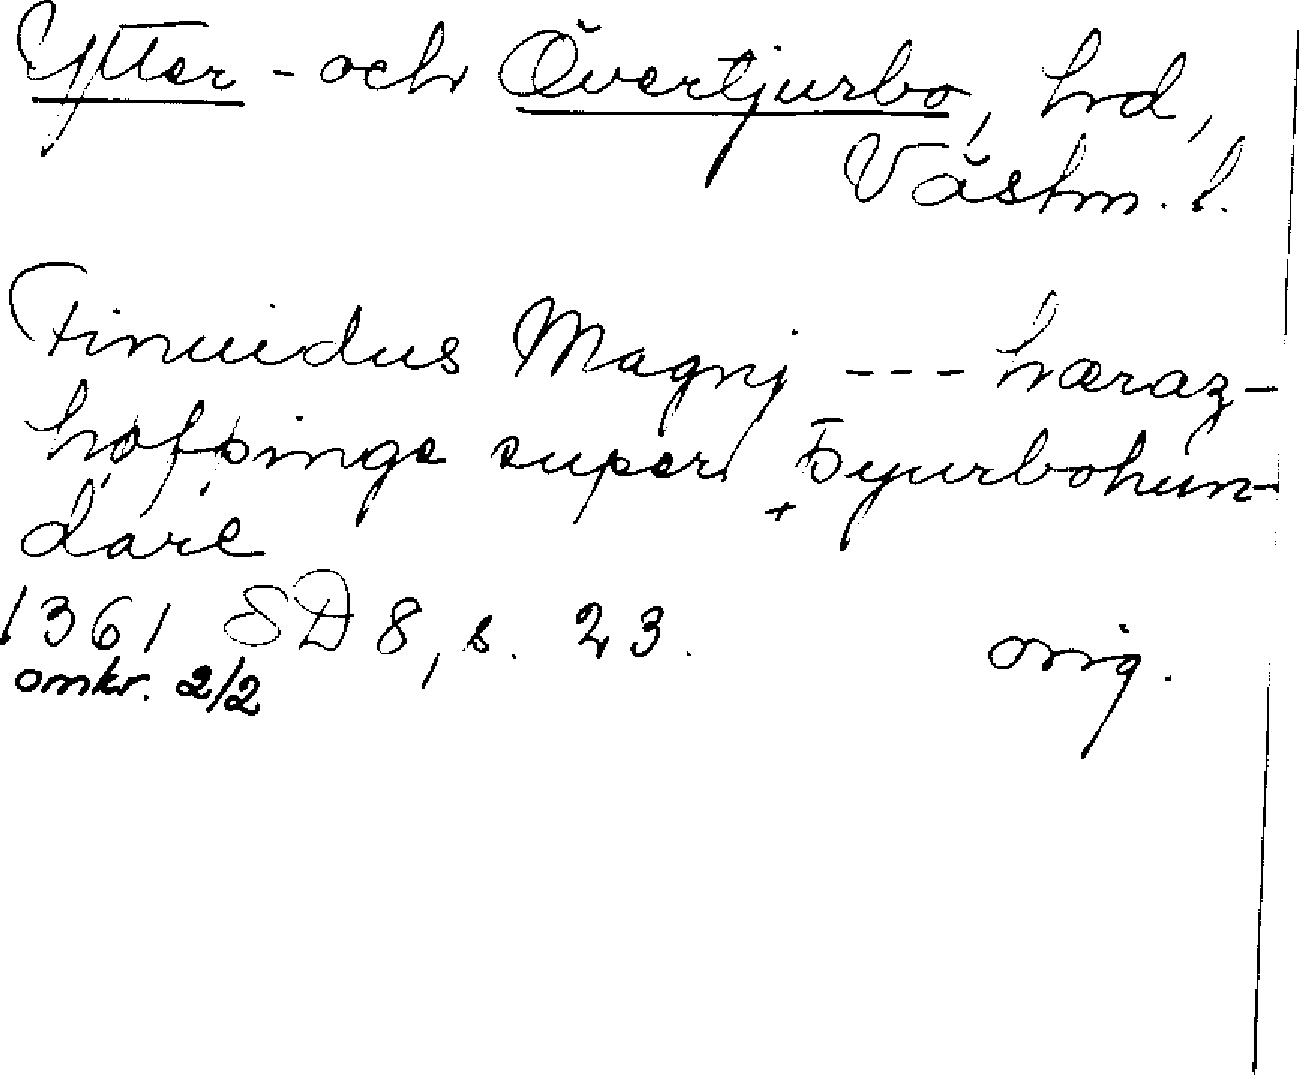 Ytter- och Övertjurbo, hd,
Västm. l.
Finuidus Magnj --- hæraz-
høfþinge super Þyurbohun-
dare
1361 SD 8, s. 23. orig.
omkr. 2/2